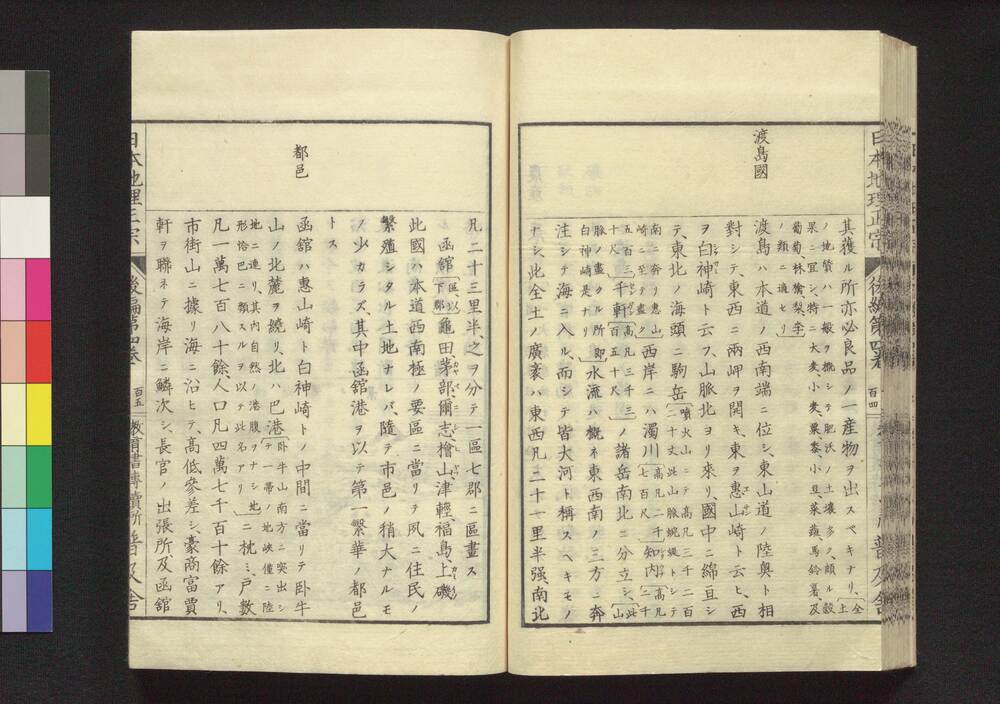 日本地理正宗 後編第四卷 百四
其獲ル所亦必良品ノ一産物ヲ出スベキナリ、全土
ノ地質ハ一般ヲ概シテ肥沃ノ土壤多ク、頗ル穀
果ニ宜シ、特ニ大麥、小麥、粟、黍、小豆、菜蔬、馬鈴薯、及
葡萄、林檎、梨、李
ノ類ニ適セリ
渡島國
渡島ハ本道ノ西南端ニ位シ、東山道ノ陸奥ト相
對シテ、東西ニ兩岬ヲ開キ、東ヲ惠山崎ト云ヒ、西
ヲ白神崎ト云フ、山脈北ヨリ來リ、國中ニ綿亘シ
テ、東北ノ海頭ニ駒岳
噴火山ニテ高凡三千二百
二十丈此山脈蜿蜒トシテ
南ニ奔リ惠山
崎ニ至テ盡ク
西岸ニハ濁川
高凡二千
七百尺
知内
高凡
二千
五百
三十
千軒
高凡三千三
百八十尺
ノ諸岳南北ニ分立シ、此山
脈ノ盡クル所即
白神崎是ナリ
水流ハ概ネ東西南ノ三方ニ奔
注シテ海ニ入ル、而シテ皆大河ト稱スヘキモノ
ナシ、此全土ノ廣袤ハ東西凡二十一里半強、南北
凡二十三里半、之ヲ分テ一區七郡ニ區畫ス
函館
區ハ
下郡
龜田茅部、爾志檜山、津輕、福島、上磯
此國ハ本道西南極ノ要區ニ當リテ夙ニ住民ノ
繁殖シタル土地ナレバ、隨テ市邑ノ稍大ナルモ
ノ少カラズ、其中函館港ヲ以テ第一繁華ノ都邑
トス
都邑
函館ハ惠山崎ト白神崎トノ中間ニ當リテ臥牛
山ノ北麓ヲ繞リ、北ハ巴港
臥牛山南方ニ突出シ
テ一帶ノ地峽僅ニ陸
地ニ連リ、其内自然ノ港腹ヲナシ地
形恰巴ニ類スルヲ以テ此名アリ
ニ枕ミ、戸數
凡一萬七百八十餘、人口凡四萬七千百十餘アリ、
市街山ニ據リ海ニ沿ヒテ、高低參差シ、豪商富賈
軒ヲ聯ネテ海岸ニ鱗次シ、長官ノ出張所、及函館
日本地理正宗 後編第四卷 百五 教育書專賣所 普及舎